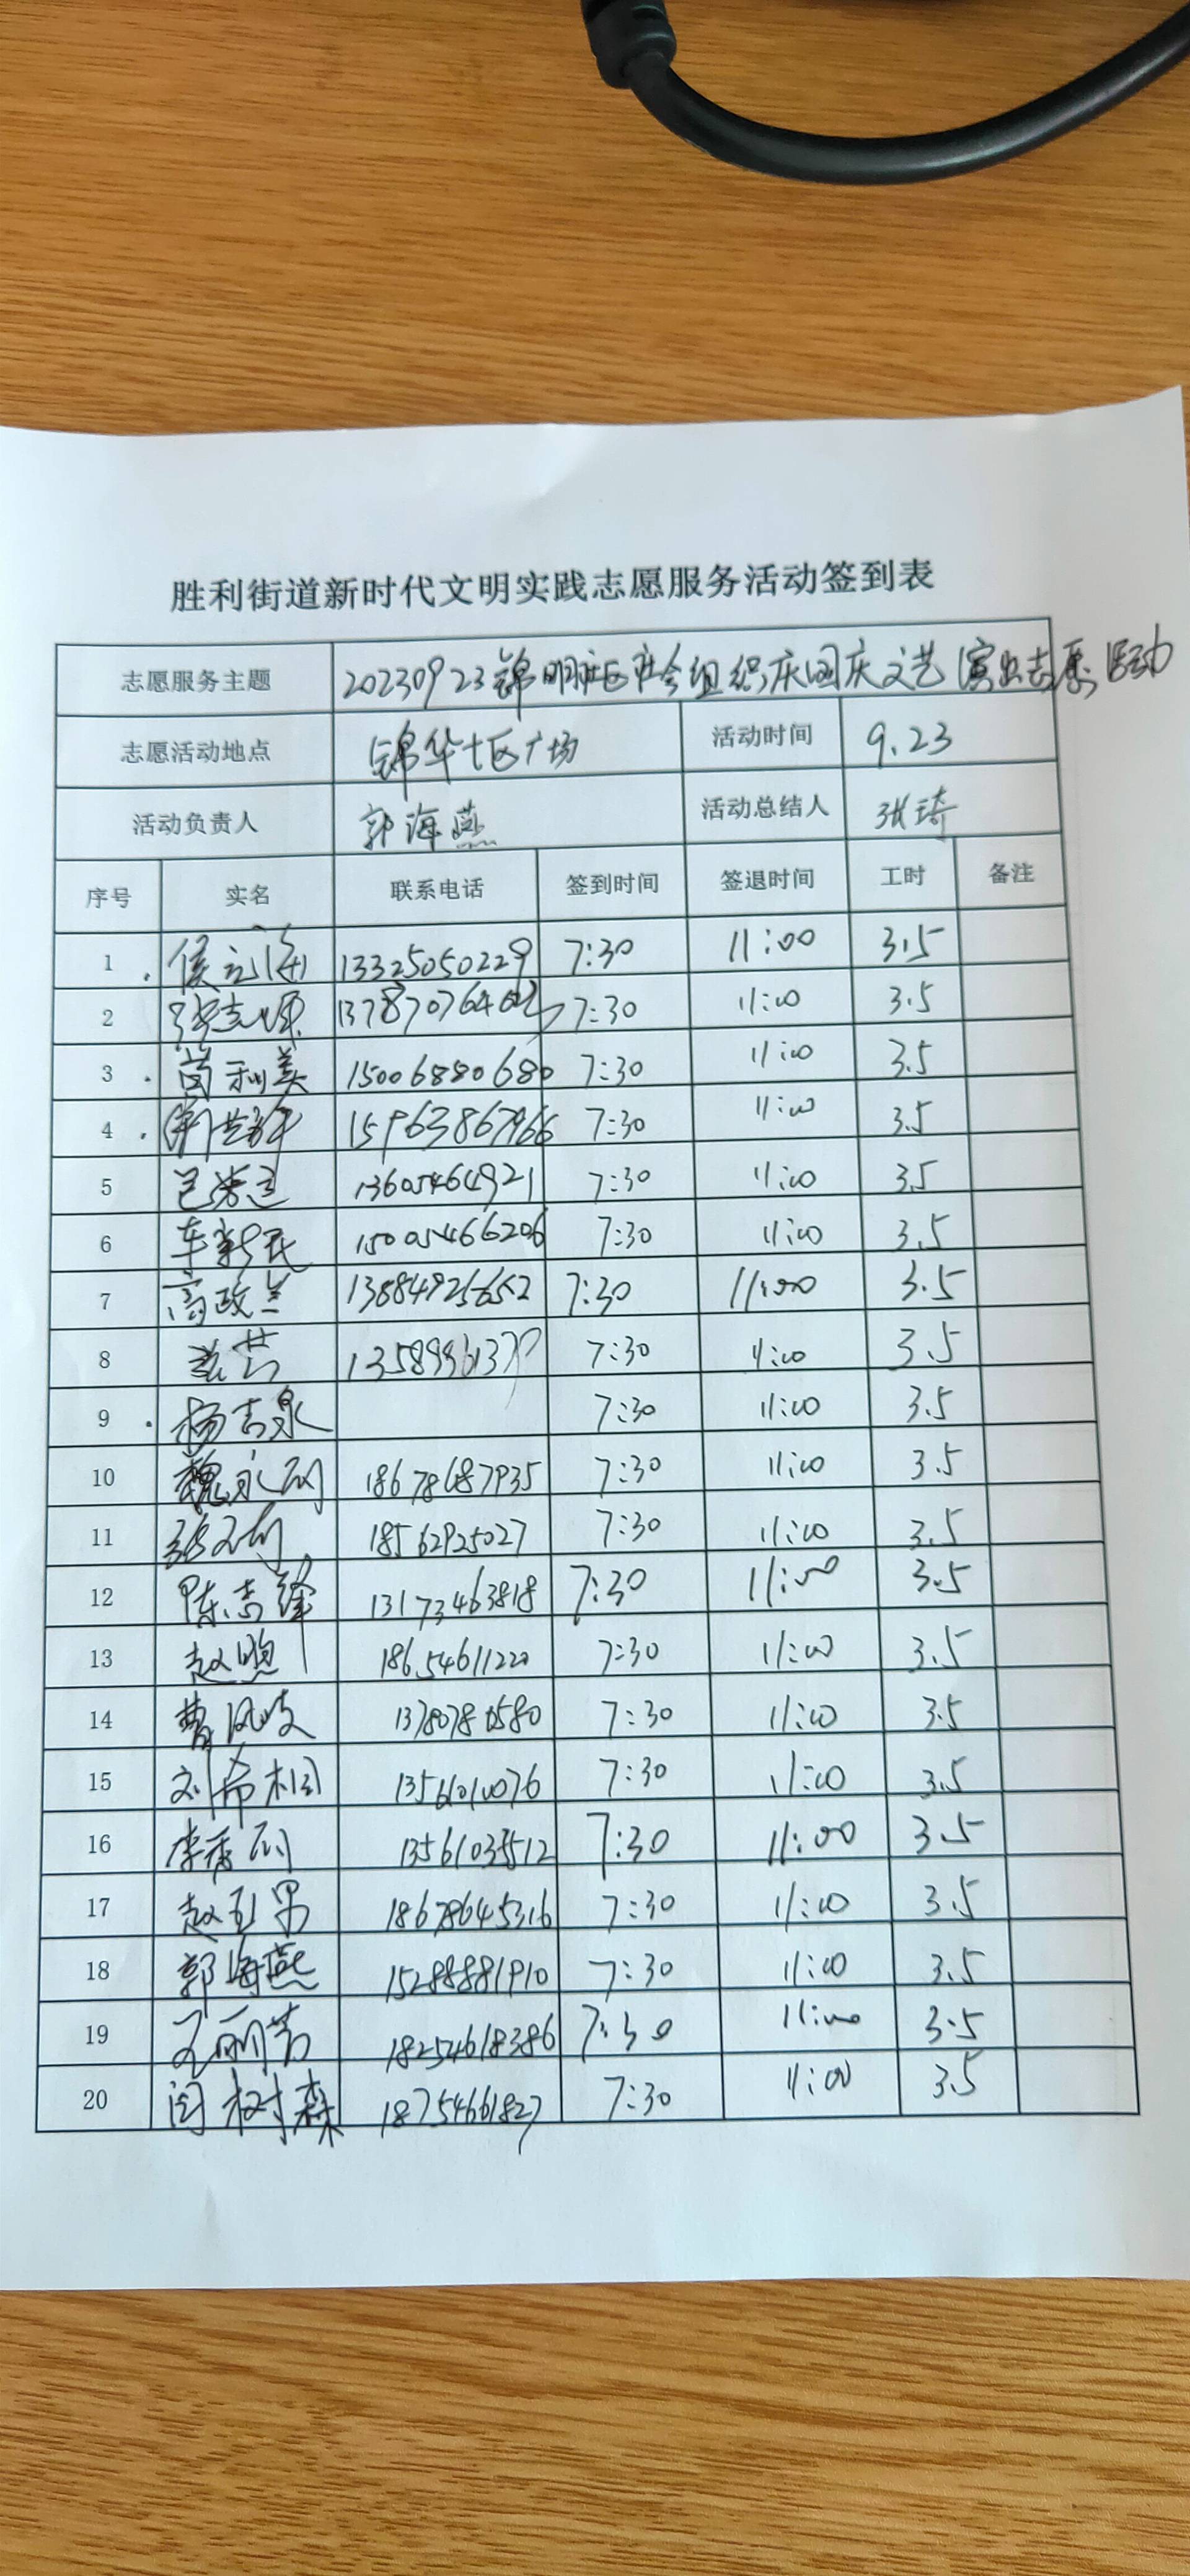 胜利街道新时代文明实践志愿服务活动签到表
志愿服务主题 20230923锦明社区社会组织庆国庆文艺演出志愿活动
志愿活动地点 锦华七区广场 活动时间 9.23
活动负责人 郭海燕 活动总结人 张琦
序号 实名 联系电话 签到时间 签退时间 工时 备注
1 13325050229 7:30 11:00 3.5
2 7:30 11:00 3.5
3 15006880680 7:30 11:00 3.5
4 7:30 11:00 3.5
5 13605464921 7:30 11:00 3.5
6 车新民 15005466206 7:30 11:00 3.5
7 高政兰 7:30 11:00 3.5
8 7:30 11:00 3.5
9 杨吉泉 7:30 11:00 3.5
10 魏永丽 18678687935 7:30 11:00 3.5
11 18562925027 7:30 11:00 3.5
12 陈志锋 13173463818 7:30 11:00 3.5
13 赵聪 18654611220 7:30 11:00 3.5
14 曹凤岐 7:30 11:00 3.5
15 刘希相 7:30 11:00 3.5
16 李秀丽 13561035512 7:30 11:00 3.5
17 赵玉男 18678645316 7:30 11:00 3.5
18 郭海燕 15288881910 7:30 11:00 3.5
19 王丽芳 18254618386 7:30 11:00 3.5
20 闫树森 18754661827 7:30 11:00 3.5